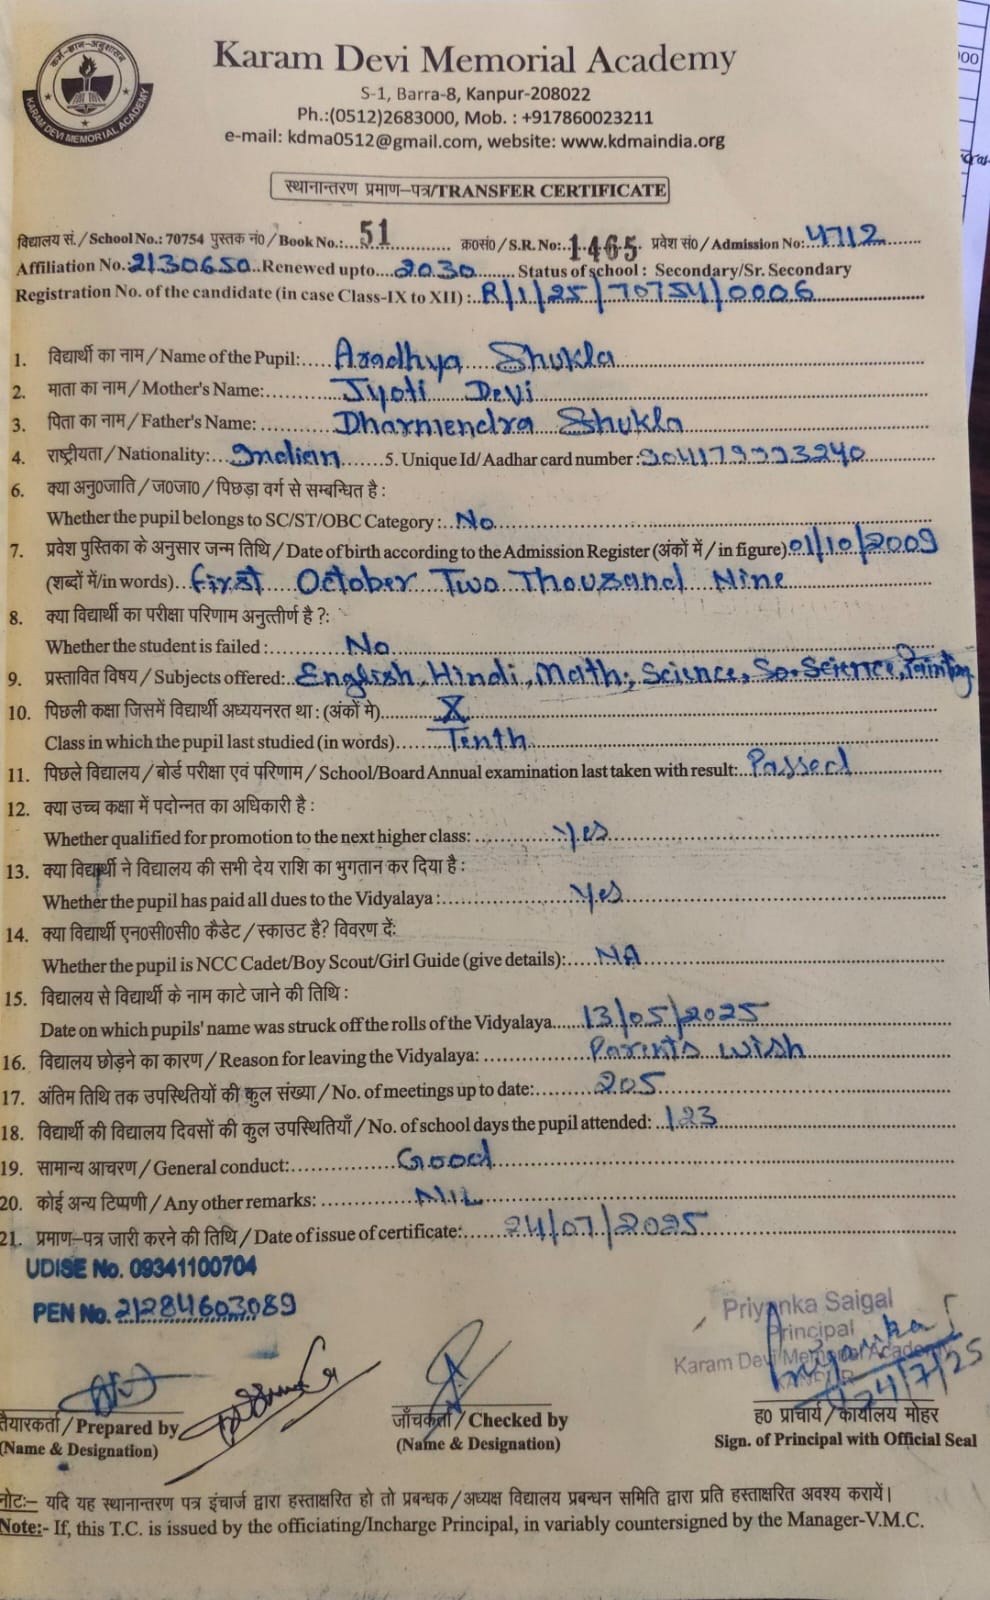 कर्म-ज्ञान-अनुशासन
KARAM DEVI MEMORIAL ACADEMY
Karam Devi Memorial Academy
S-1, Barra-8, Kanpur-208022
Ph.:(0512)2683000, Mob. : +917860023211
e-mail: kdma0512@gmail.com, website: www.kdmaindia.org
स्थानान्तरण प्रमाण-पत्र/TRANSFER CERTIFICATE
विद्यालय सं./School No.: 70754 पुस्तक नं0/Book No.:...51............ क्र0सं0/S.R. No:.1465 प्रवेश सं0/Admission No:4712......
Affiliation No.:2130650..Renewed upto....2030....... Status of school : Secondary/Sr. Secondary
Registration No. of the candidate (in case Class-IX to XII) :..R/1/25/70754/0006
1. विद्यार्थी का नाम/Name of the Pupil:.....Aradhya Shukla
2. माता का नाम/Mother's Name:..........Jyoti Devi
3. पिता का नाम/Father's Name: ..........Dharmendra Shukla
4. राष्ट्रीयता/Nationality:...Indian.......5. Unique Id/ Aadhar card number :
6. क्या अनु0जाति/ज0जा0/पिछड़ा वर्ग से सम्बन्धित है :
Whether the pupil belongs to SC/ST/OBC Category :..No
7. प्रवेश पुस्तिका के अनुसार जन्म तिथि/Date of birth according to the Admission Register (अंकों में/in figure) 01/10/2009
(शब्दों में/in words)..first October Two Thousand Nine
8. क्या विद्यार्थी का परीक्षा परिणाम अनुत्तीर्ण है ?:
Whether the student is failed :..........No
9. प्रस्तावित विषय/Subjects offered:..English, Hindi, Math, Science, So. Science, Painting
10. पिछली कक्षा जिसमें विद्यार्थी अध्ययनरत था : (अंकों मे).........X
Class in which the pupil last studied (in words).....Tenth
11. पिछले विद्यालय/बोर्ड परीक्षा एवं परिणाम/School/Board Annual examination last taken with result:..Passed
12. क्या उच्च कक्षा में पदोन्नत का अधिकारी है :
Whether qualified for promotion to the next higher class: ..........Yes
13. क्या विद्यार्थी ने विद्यालय की सभी देय राशि का भुगतान कर दिया है :
Whether the pupil has paid all dues to the Vidyalaya :...............Yes
14. क्या विद्यार्थी एन0सी0सी0 कैडेट/स्काउट है? विवरण दें:
Whether the pupil is NCC Cadet/Boy Scout/Girl Guide (give details):....NA
15. विद्यालय से विद्यार्थी के नाम काटे जाने की तिथि :
Date on which pupils' name was struck off the rolls of the Vidyalaya.....13/05/2025
16. विद्यालय छोड़ने का कारण/Reason for leaving the Vidyalaya: ..........Parents wish
17. अंतिम तिथि तक उपस्थितियों की कुल संख्या/No. of meetings up to date:.........205
18. विद्यार्थी की विद्यालय दिवसों की कुल उपस्थितियाँ/No. of school days the pupil attended: 123
19. सामान्य आचरण/General conduct:...............Good
20. कोई अन्य टिप्पणी/Any other remarks: ..............NIL
21. प्रमाण-पत्र जारी करने की तिथि/Date of issue of certificate:......24/07/2025
UDISE No. 09341100704
PEN No. 21284603089
Priyanka Saigal
Principal
Karam Devi Memorial Academy
24/7/25
तैयारकर्ता/Prepared by
(Name & Designation)
जाँचकर्ता/Checked by
(Name & Designation)
ह0 प्राचार्य/कार्यालय मोहर
Sign. of Principal with Official Seal
नोट:- यदि यह स्थानान्तरण पत्र इंचार्ज द्वारा हस्ताक्षरित हो तो प्रबन्धक/अध्यक्ष विद्यालय प्रबन्धन समिति द्वारा प्रति हस्ताक्षरित अवश्य करायें।
Note:- If, this T.C. is issued by the officiating/Incharge Principal, in variably countersigned by the Manager-V.M.C.